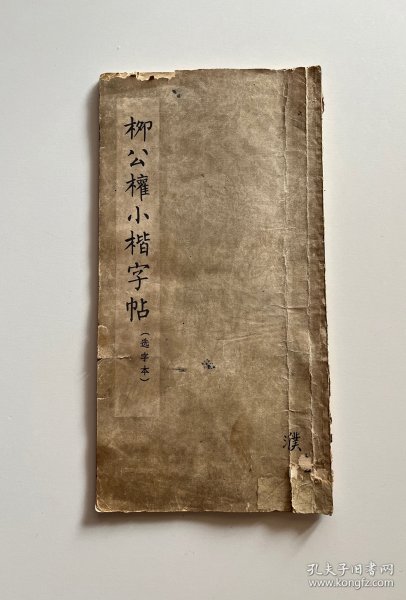 柳公權小楷字帖
（选字本）
濮
孔夫子旧书网
www.kongfz.com